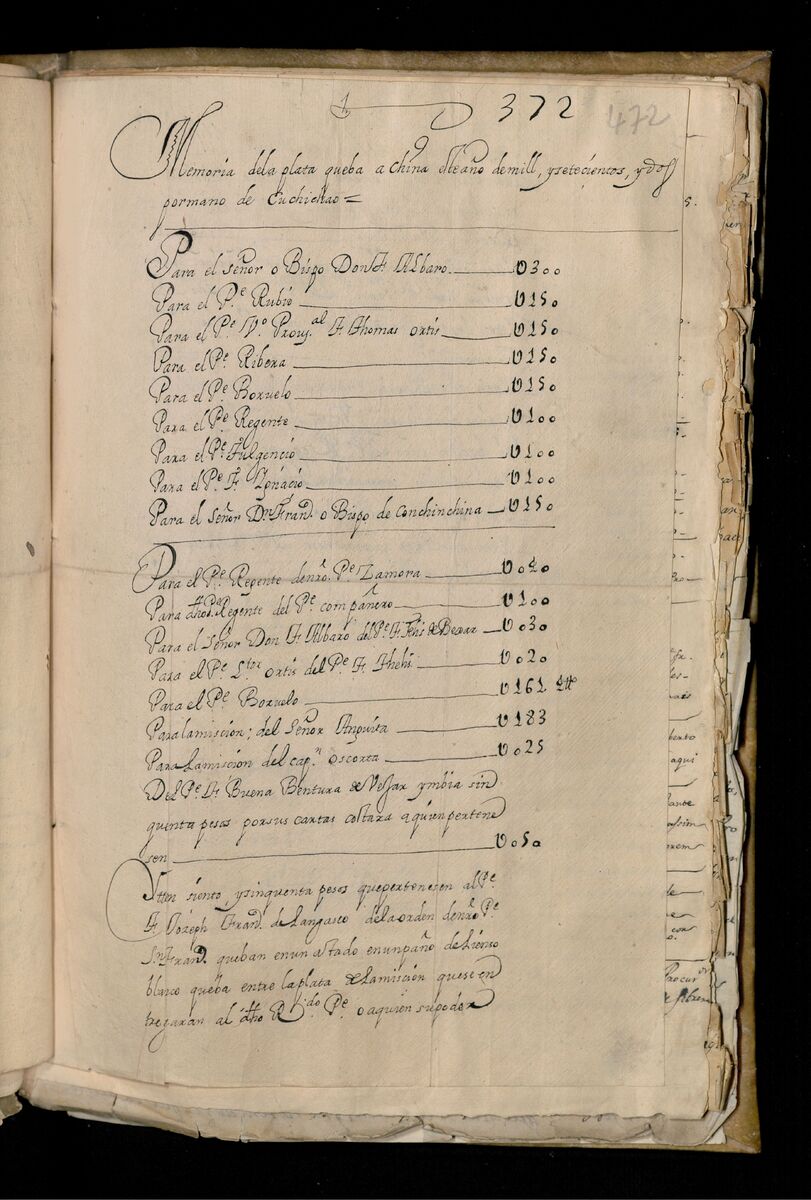 1 372 472
Memoria dela plata queba a China este año demill, ysetecientos, ydos
pormano de Cuchictao =
Para el señor o Bispo Don fr Albaro. U300
Para el Pe. Rubio U150
Para el Pe. Vo. Proval. fr Thomas ortis U150
Para el Pe. Ribera U150
Para el Pe. Borruelo U150
Para el Pe. Regente U100
Para el Pe. Fulgencio U100
Para el Pe. fr. Ygnacio U100
Para el señor Dn. Frand. o Bispo de Conchinchina U150
Para el Pe. Regente denro. Pe Zamora U020
Para dho Pe. Regente del Pe. compañero U100
Para el señor Don fr Albaro del Pe. fr de Bexar U030
Para el Pe. ortis del Pe. fr U020
Para el Pe. Borruelo U161
Para lamiscion; del señor Anguita U183
Para Lamiscion del capn. oscorta U025
Del Pe. fr Buena Bentura de Vejar ymbia sin
quenta pesos porsus cartas costara aquienpertene
sen U050
Ytten siento ysinquenta pesos quepertenesen al Pe.
fr Joseph Frand. de Langasco dela orden denro Pe.
Sn Frand. queban enun atado enunpaño de Lienso
blanco queba entre laplata de Lamiscion quese en
tregaran al dho Rido. Pe. o aquien supoder